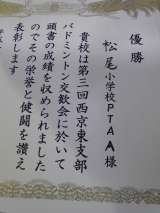 優勝
松尾小学校PTAA様
貴校は第三回西京東支部
バドミントン交歓会に於いて
頭書の成績を収められました
のでその栄誉と健闘を讃え
表彰します